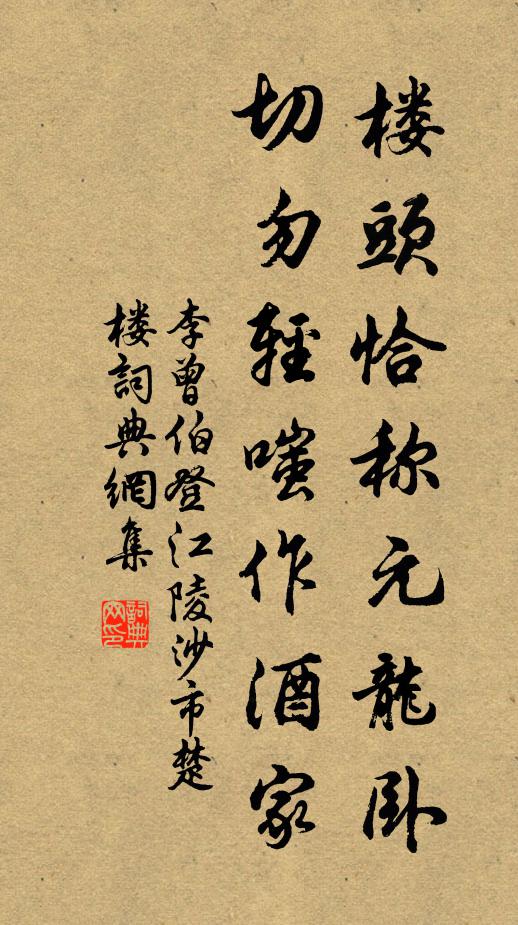 楼頭恰称元龍卧
切勿輕嗤作酒家
李曾伯登江陵沙市楚
楼詞典網集
詞典
网印